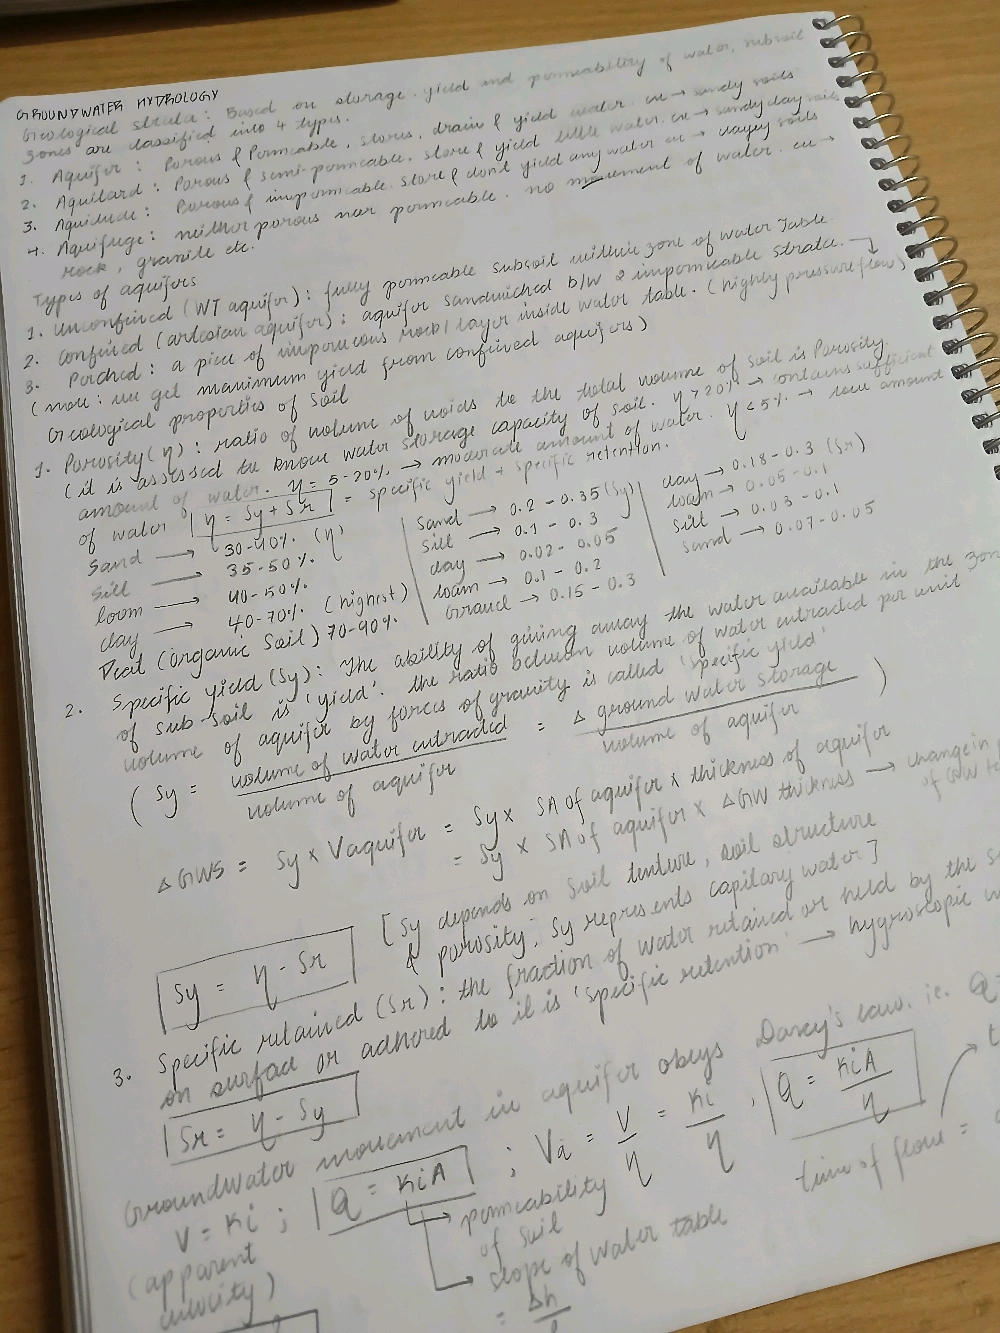 GROUNDWATER HYDROLOGY
Geological strata: Based on storage, yield and permeability of water, subsoil
zones are classified into 4 types.
1. Aquifer : Porous & Permeable, stores, drain & yield water. eu → sandy soils
2. Aquitard : Porous & semi-permeable, store & yield little water. eu → sandy clay soils
3. Aquiclude : Porous & impermeable. store & dont yield any water eu → clayey soils
4. Aquifuge : neither porous nor permeable. no movement of water. eu →
rock, granite etc.
Types of aquifers
1. Unconfined (WT aquifer) : fully permeable subsoil within zone of water Table
2. Confined (artesian aquifer) : aquifer sandwiched b/w 2 impermeable strata. →
3. Perched : a piece of impervious rock / layer inside water table. (highly pressure flow)
(note : we get maximum yield from confined aquifers)
Geological properties of soil
1. Porosity (η) : ratio of volume of voids to the total volume of soil is Porosity.
(it is assessed to know water storage capacity of soil. η > 20% → contains sufficient
amount of water. η = 5-20% → moderate amount of water. η < 5% → low amount
of water η = Sy + Sr = specific yield + specific retention.
Sand → 30-40% (η)
Silt → 35-50%
loom → 40-50%
clay → 40-70% (highest)
Peat (organic Soil) 70-90%
Sand → 0.2 - 0.35 (Sy)
Silt → 0.1 - 0.3
clay → 0.02 - 0.05
loam → 0.1 - 0.2
Gravel → 0.15 - 0.3
clay → 0.18 - 0.3 (Sr)
loam → 0.05 - 0.1
silt → 0.03 - 0.1
Sand → 0.07 - 0.05
2. Specific yield (Sy) : The ability of giving away the water available in the zon
of sub-soil is 'yield'. the ratio between volume of water extracted per unit
volume of aquifer by forces of gravity is called 'specific yield'
( Sy = volume of water extracted / volume of aquifer = Δ ground water storage / volume of aquifer )
Δ GWS = Sy x Vaquifer = Sy x SA of aquifer x thickness of aquifer
= Sy x SA of aquifer x ΔGW thickness → change in
of GW
Sy = η - Sr
[Sy depends on soil texture, soil structure
& porosity, Sy represents capilary water]
3. Specific retained (Sr) : the fraction of water retained or held by the
on surface or adhered to it is 'specific retention' → hygroscopic
Sr = η - Sy
Groundwater movement in aquifer obeys Darcy's law. ie. Q
V = Ki ; Q = KiA ; Va = V/η = Ki/η , Q = KiA/η
(apparent
velocity)
permeability
of soil
slope of water table
= Δh/l
time of flow =